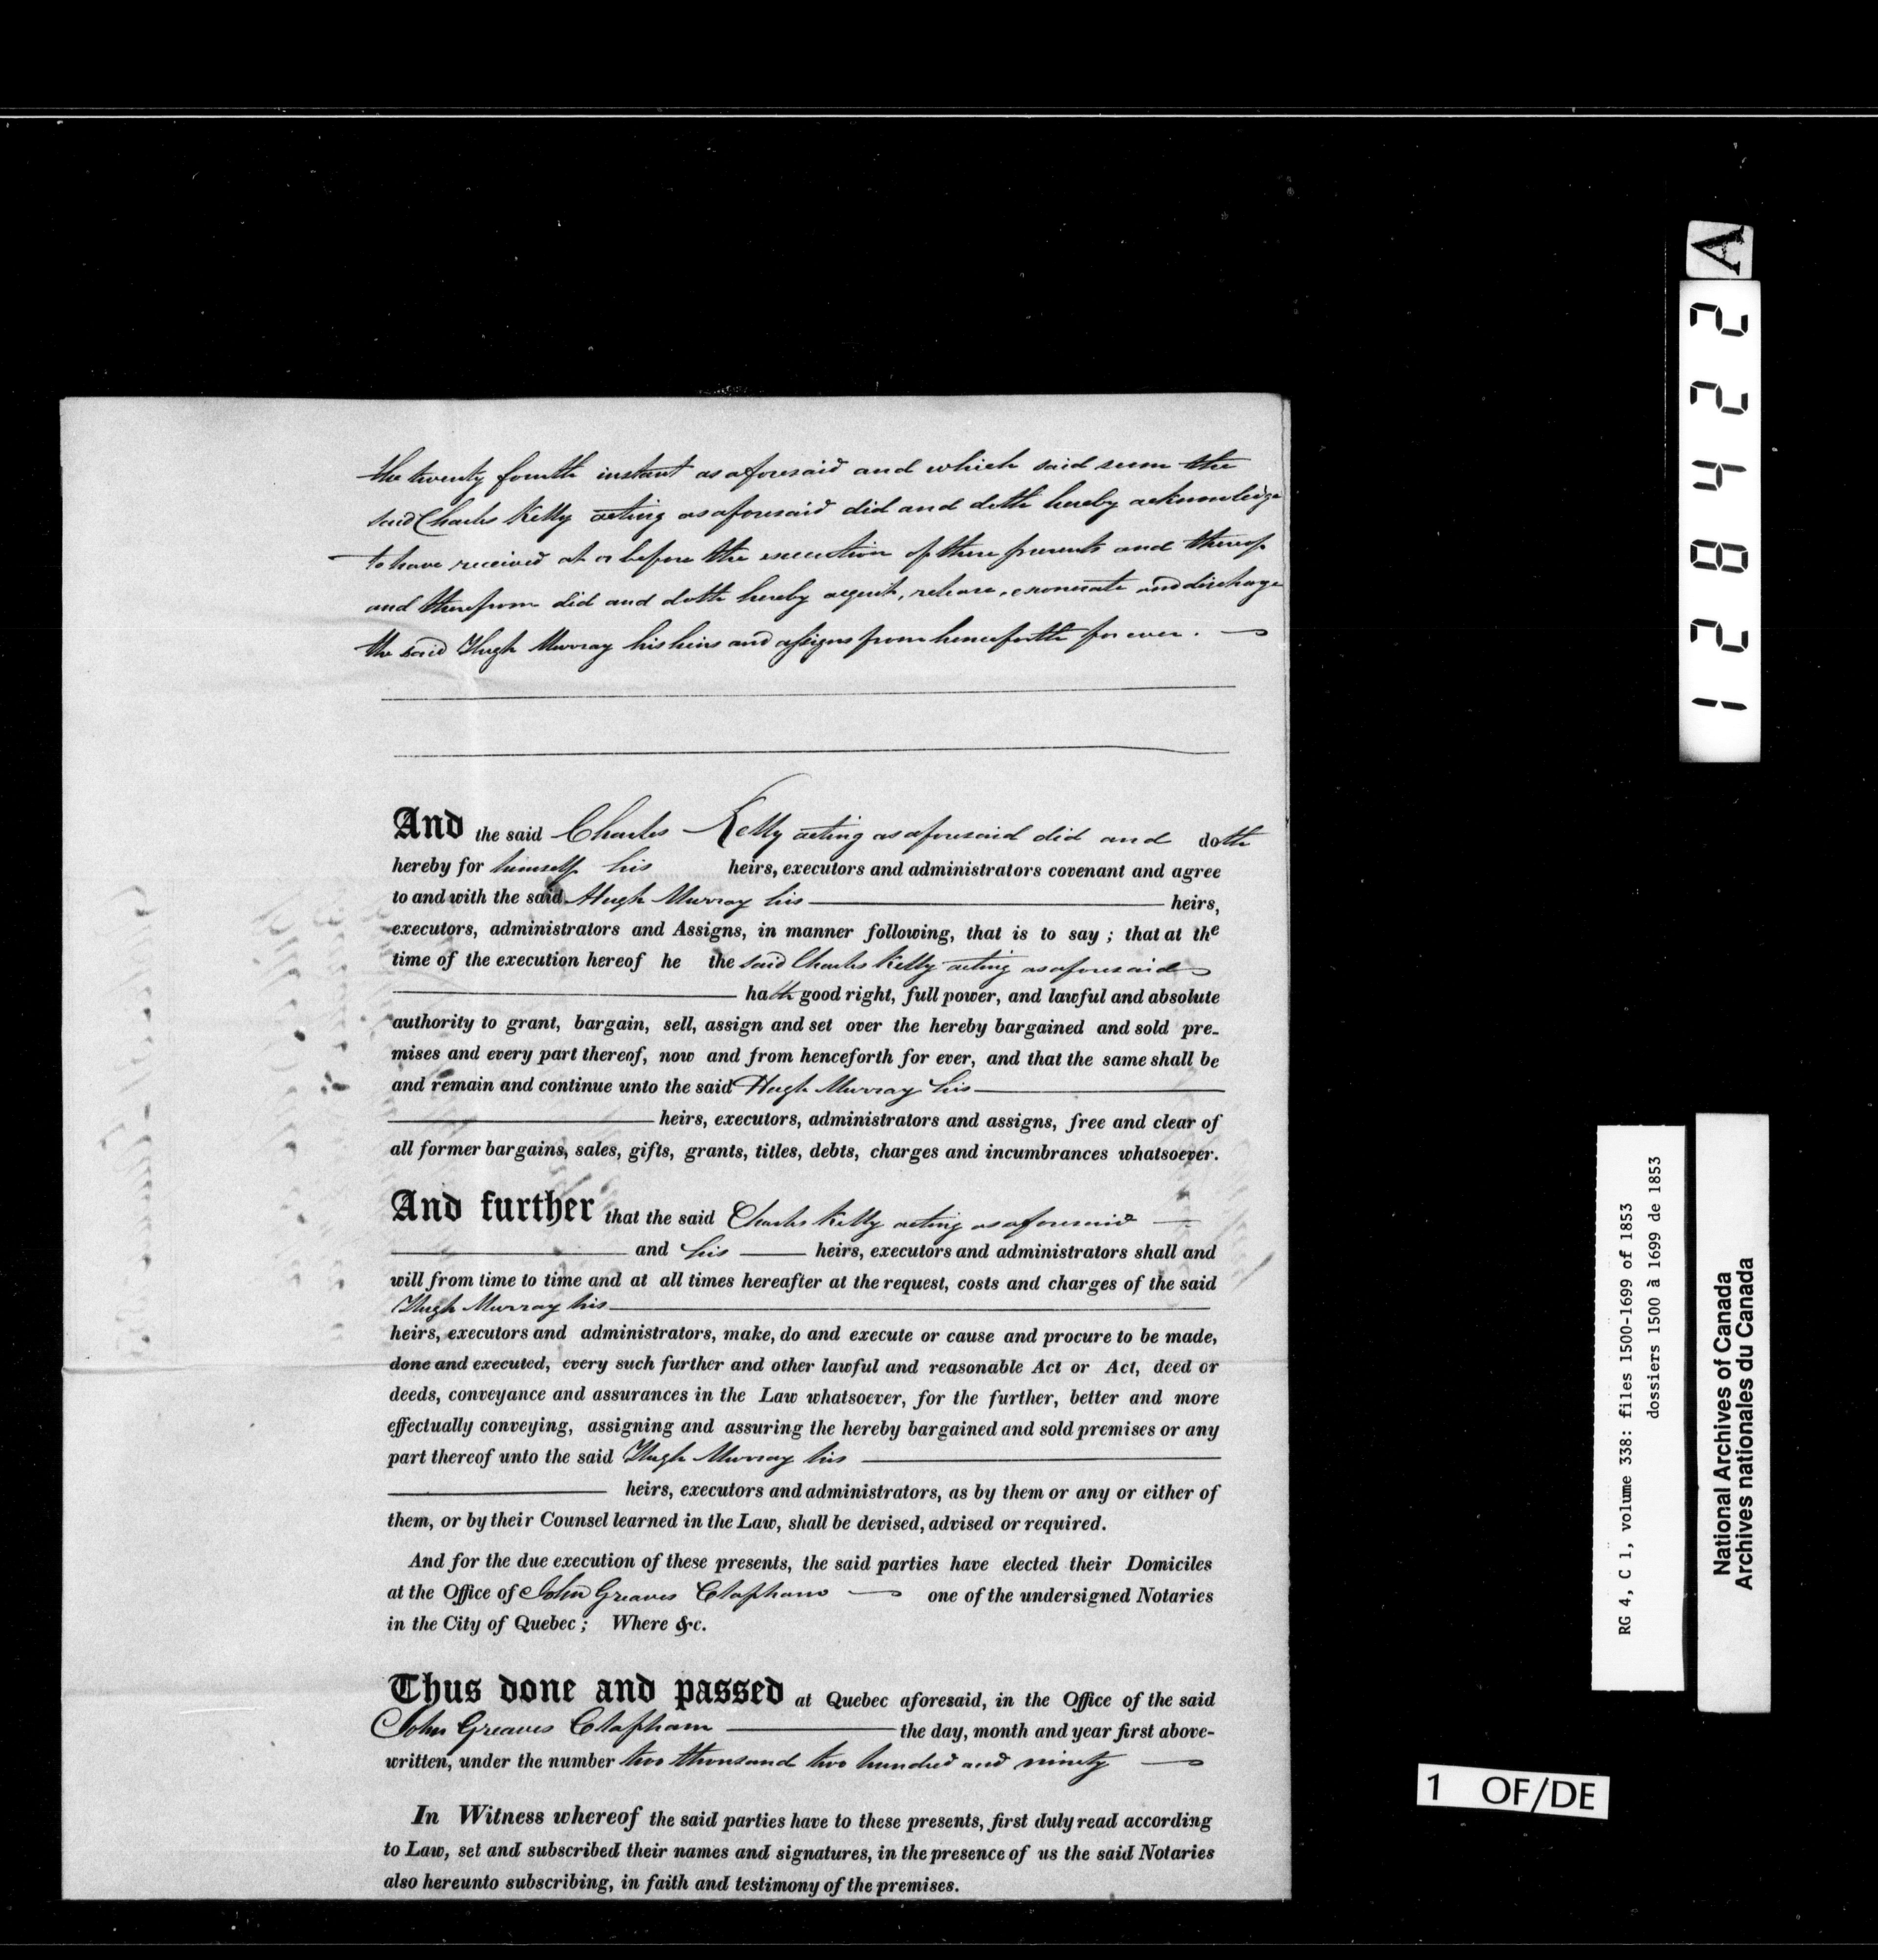 the twenty fourth instant as aforesaid and which said sum the
said Charles Kelly acting as aforesaid did and doth hereby acknowledge
to have received at or before the execution of these presents and thereof
and therefrom did and doth hereby acquit, release, exonerate and discharge
the said Hugh Murray his heirs and assigns from henceforth for ever.
And the said Charles Kelly acting as aforesaid did and doth
hereby for himself his heirs, executors and administrators covenant and agree
to and with the said Hugh Murray his heirs,
executors, administrators and Assigns, in manner following, that is to say ; that at the
time of the execution hereof he the said Charles Kelly acting as aforesaid
hath good right, full power, and lawful and absolute
authority to grant, bargain, sell, assign and set over the hereby bargained and sold pre-
mises and every part thereof, now and from henceforth for ever, and that the same shall be
and remain and continue unto the said Hugh Murray his
heirs, executors, administrators and assigns, free and clear of
all former bargains, sales, gifts, grants, titles, debts, charges and incumbrances whatsoever.
And further that the said Charles Kelly acting as aforesaid
and his heirs, executors and administrators shall and
will from time to time and at all times hereafter at the request, costs and charges of the said
Hugh Murray his
heirs, executors and administrators, make, do and execute or cause and procure to be made,
done and executed, every such further and other lawful and reasonable Act or Act, deed or
deeds, conveyance and assurances in the Law whatsoever, for the further, better and more
effectually conveying, assigning and assuring the hereby bargained and sold premises or any
part thereof unto the said Hugh Murray his
heirs, executors and administrators, as by them or any or either of
them, or by their Counsel learned in the Law, shall be devised, advised or required.
And for the due execution of these presents, the said parties have elected their Domiciles
at the Office of John Greaves Clapham one of the undersigned Notaries
in the City of Quebec ; Where &c.
Thus done and passed at Quebec aforesaid, in the Office of the said
John Greaves Clapham the day, month and year first above-
written, under the number two thousand two hundred and ninety
In Witness whereof the said parties have to these presents, first duly read according
to Law, set and subscribed their names and signatures, in the presence of us the said Notaries
also hereunto subscribing, in faith and testimony of the premises.
128422 A
RG 4, C 1, volume 338: files 1500-1699 of 1853
dossiers 1500 à 1699 de 1853
National Archives of Canada
Archives nationales du Canada
1 OF/DE